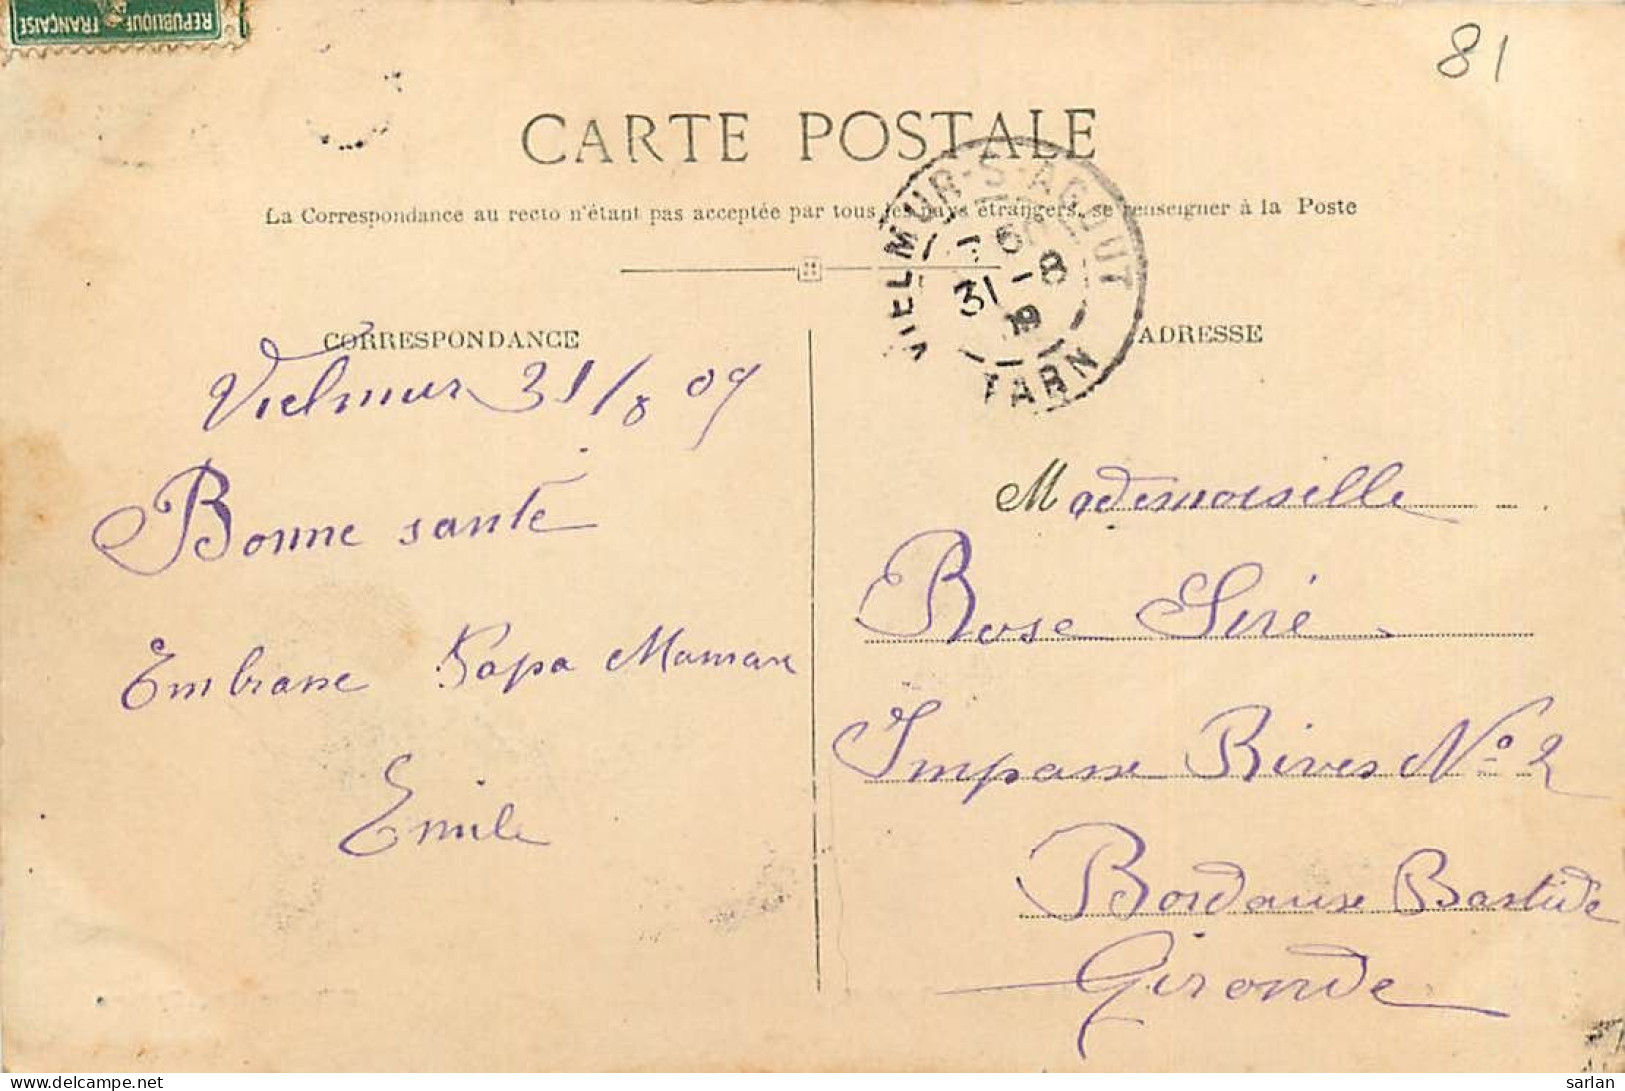 REPUBLIQUE FRANÇAISE
81
CARTE POSTALE
La Correspondance au recto n'étant pas acceptée par tous les pays étrangers, se renseigner à la Poste
VIELMUR-S-AGOUT
31 - 8
TARN
CORRESPONDANCE
Vielmur 31/8 09
Bonne santé
Embrasse Papa Maman
Emile
ADRESSE
Mademoiselle
Rose Siré
Impasse Rives No 2
Bordeaux Bastide
Gironde
sarlan